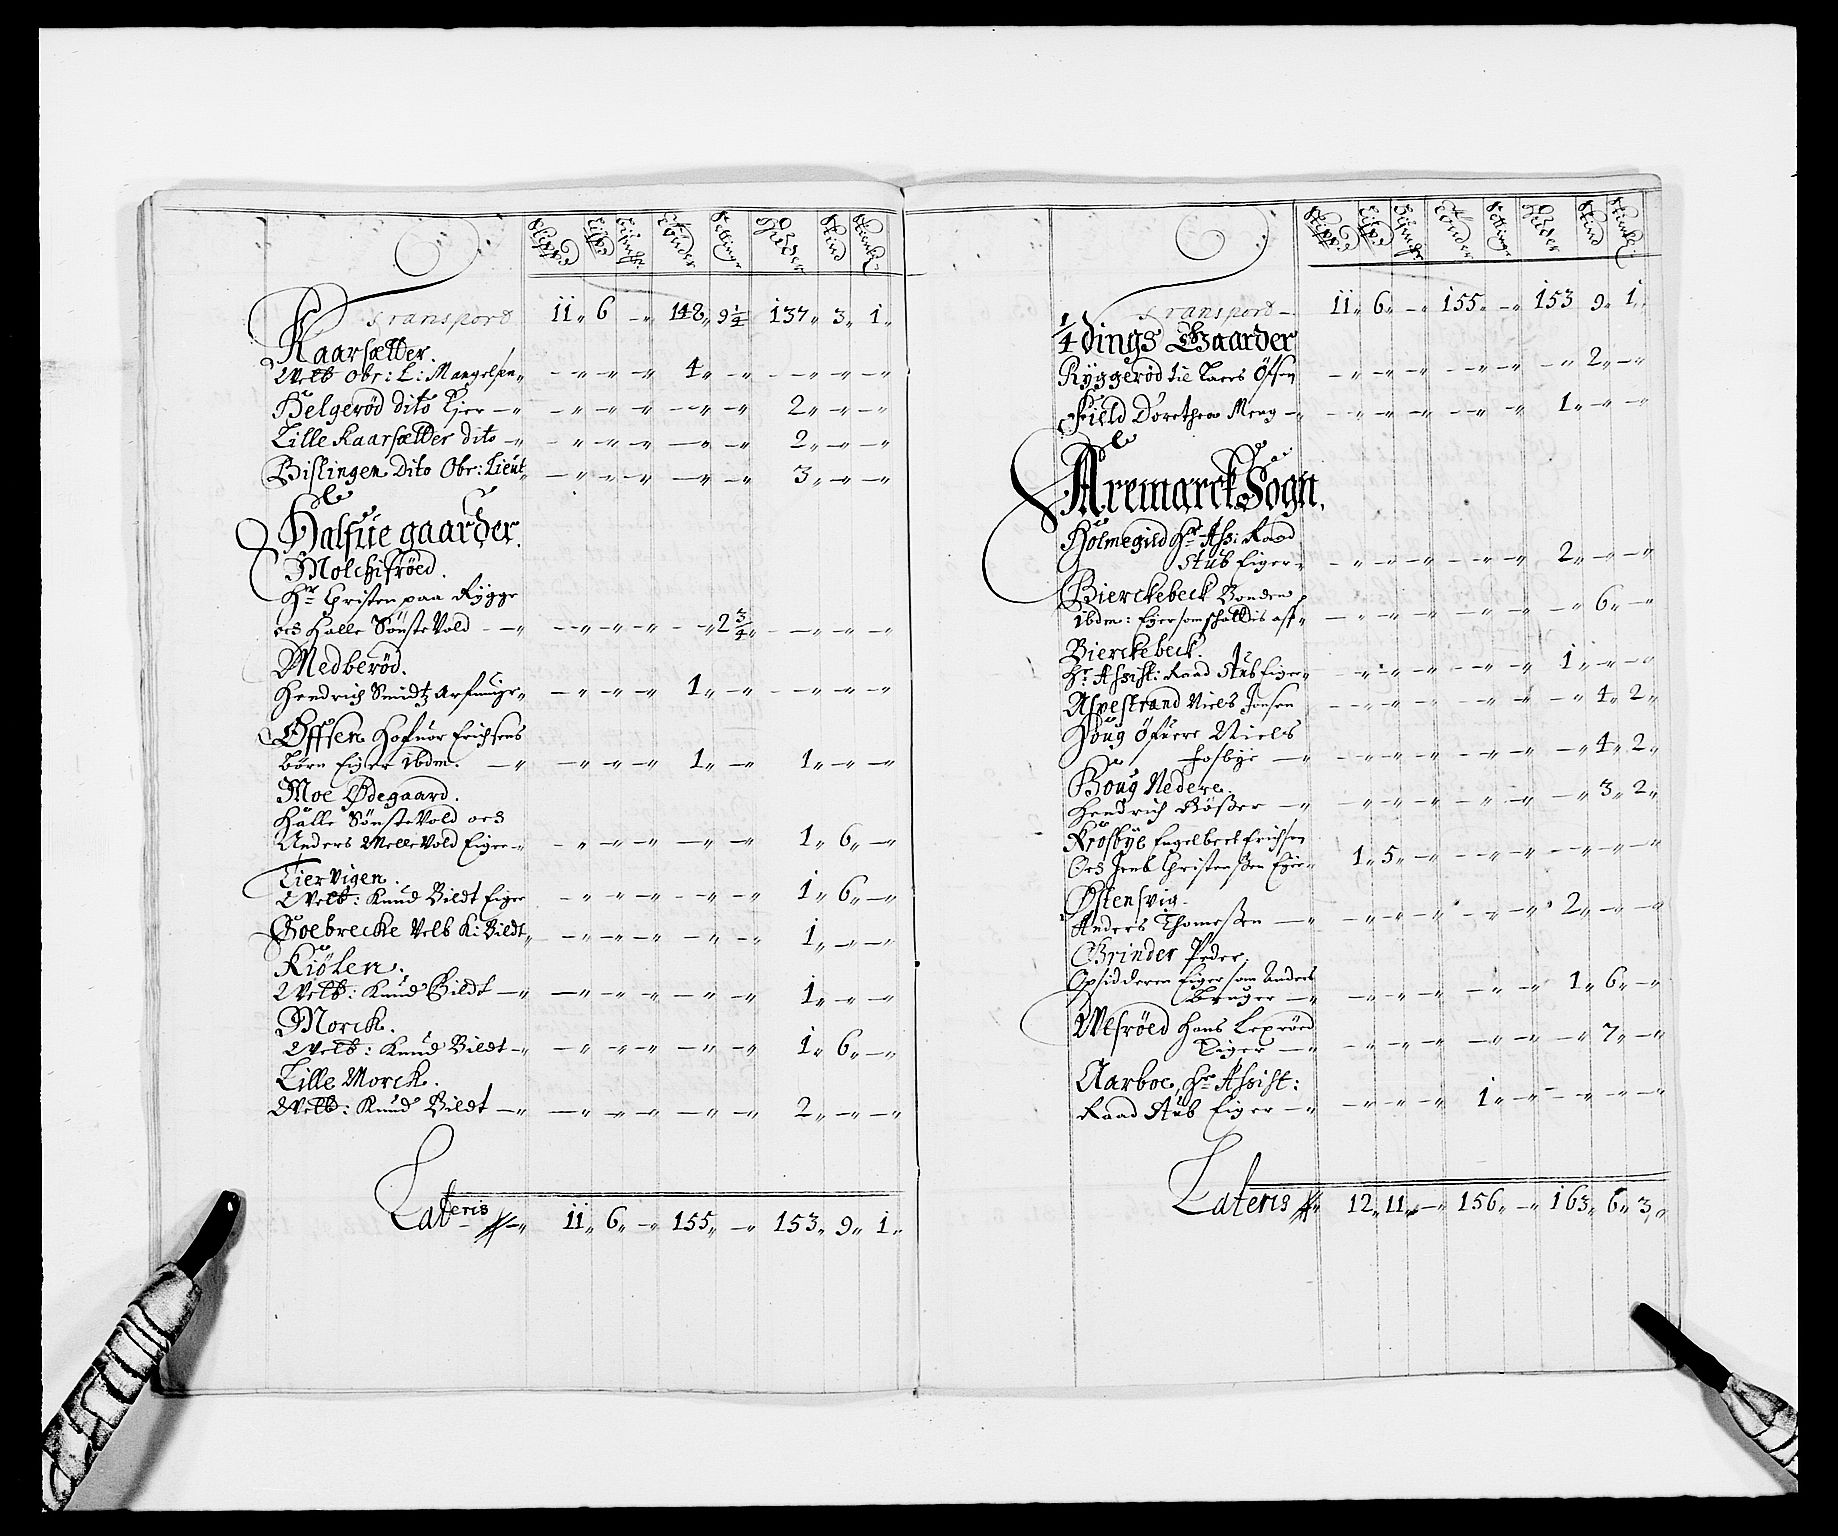 Skippd Lispd Tønder Settinger Huder Skind
Transport 11„ 6 -„ 148„ 9¼ 137„ 3„ 1„
Kaarsætter.
Welb Obr: L: Mangelsen„ -„ -„ -„ 4„ -„ -„ -„ -„
Helgerød dito Ejer -„ -„ -„ -„ -„ -„ 2„ -„ -„
Lille Kaarsætter dito -„ -„ -„ -„ -„ -„ 2„ -„ -„
Bislingen Dito Obr: Lieut„ -„ -„ -„ -„ -„ 3„ -„ -„
Halfue gaarder.
Molchifrøed.
Hr Christen paa Rygge
ocs Halle SønsteVold -„ -„ -„ -„ -„ 2¾„ -„ -„ -„
Medberød.
Hendrich Smidtz Arfuinger„ -„ -„ -„ 1„ -„ -„ -„ -„
Øffsen Hofuor Erichsens
Børn Eiger ibdm. -„ -„ -„ -„ 1„ -„ 1„ -„ -„
Moe Ødegaard.
Halle SønsteVold ocs
Anders MelleVold Eiger„ -„ -„ -„ -„ -„ 1„ 6„ -„
Tiervigen.
Welb: Knud Bildt Eiger -„ -„ -„ -„ -„ 1„ 6„ -„
Soebrecke Velb K: Bildt„ -„ -„ -„ -„ -„ 1„ -„ -„
Kiølen.
Welb: Knud Bildt -„ -„ -„ -„ -„ -„ 1„ -„ -„
Morck.
Welb: Knud Bildt -„ -„ -„ -„ -„ -„ 1„ 6„ -„
Lille Morck.
Welb: Knud Bildt -„ -„ -„ -„ -„ -„ 2„ -„ -„
Lateris -„ 11„ 6„ -„ 155„ -„ 153„ 9„ 1„
Skippd Lispd Tønder Settinger Huder Skind
Transport - 11„ 6„ -„ 155„ -„ 153 9„ 1„
¼ dings Gaarder
Ryggerød til Lars Øfsen -„ -„ -„ -„ -„ -„ 2„ -„
Field Dorethea Meng -„ -„ -„ -„ -„ -„ 1„ -„ -„
Aremarck Sogn.
Holmegild Hr Ass: Raad
Stub Eiger„ -„ -„ -„ -„ -„ 2„ -„ -„
Bierckebeck Bonden
ibdm: Ejer som schalldis aff„ -„ -„ -„ -„ -„ -„ 6„ -„
Bierckebeck.
Hr Assist: Raad Stub Eiger„ -„ -„ -„ -„ -„ 1„ -„ -„
Aspestrand Niels Jonsen -„ -„ -„ -„ -„ -„ 4„ 2„
Houg Øfuere Niels
Fosbye -„ -„ -„ -„ -„ -„ -„ 4„ 2„
Houg Nedere.
Hendrich Bösser -„ -„ -„ -„ -„ -„ -„ 3„ 2„
Krosbye Engelbret Erichsen
Ocs Jens Christenssen Ejer„ 1„ 5„ -„ -„ -„ -„ -„ -„
Østensvig.
Anders Thomessen -„ -„ -„ -„ -„ -„ 2„ -„ -„
Grinder Peder.
Opsidderen Eiger som Anders
Bruger -„ -„ -„ -„ -„ -„ 1„ 6„ -„
Ulfrøed Hans Leprøed
Eiger -„ -„ -„ -„ -„ -„ -„ 7„ -„
Aarboe, Hr Assist:
Raad Stub Eiger -„ -„ -„ -„ 1„ -„ -„ -„ -„
Lateris 12„ 11„ -„ 156„ -„ 163„ 6„ 3„